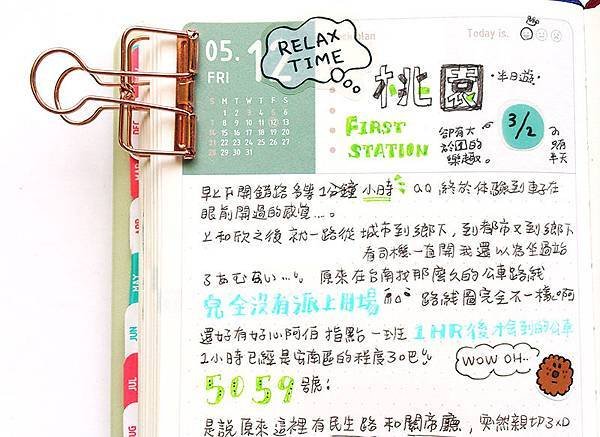 05. 12
FRI
RELAX
TIME
plan
Today is.
S M T W T F S
1 2 3 4 5 6
7 8 9 10 11 12 13
14 15 16 17 18 19 20
21 22 23 24 25 26 27
28 29 30 31
桃園 ·半日遊·
FIRST
STATION
卻有大
於1的
樂趣。
3/2
半天
DEC
MAR
APR
MAY
JUN
JUL
AUG
早上下開錯路多等1分鐘 小時 QQ 終於体驗到車子在
眼前開過的感覺...。
上和欣之後 就一路從 城市到鄉下,到都市又到鄉下
看司機一直開我還以為坐過站
了 原來在台南找那麼久的公車路線
完全沒有派上用場 路線圖完全不一樣啊
還好有好心阿伯 指點 一班 1HR後才會到的公車
1小時已經是安南區的程度30巴
WOW OH..
5059 號!
是說原來這裡有民生路和關帝廳,突然親切3xD